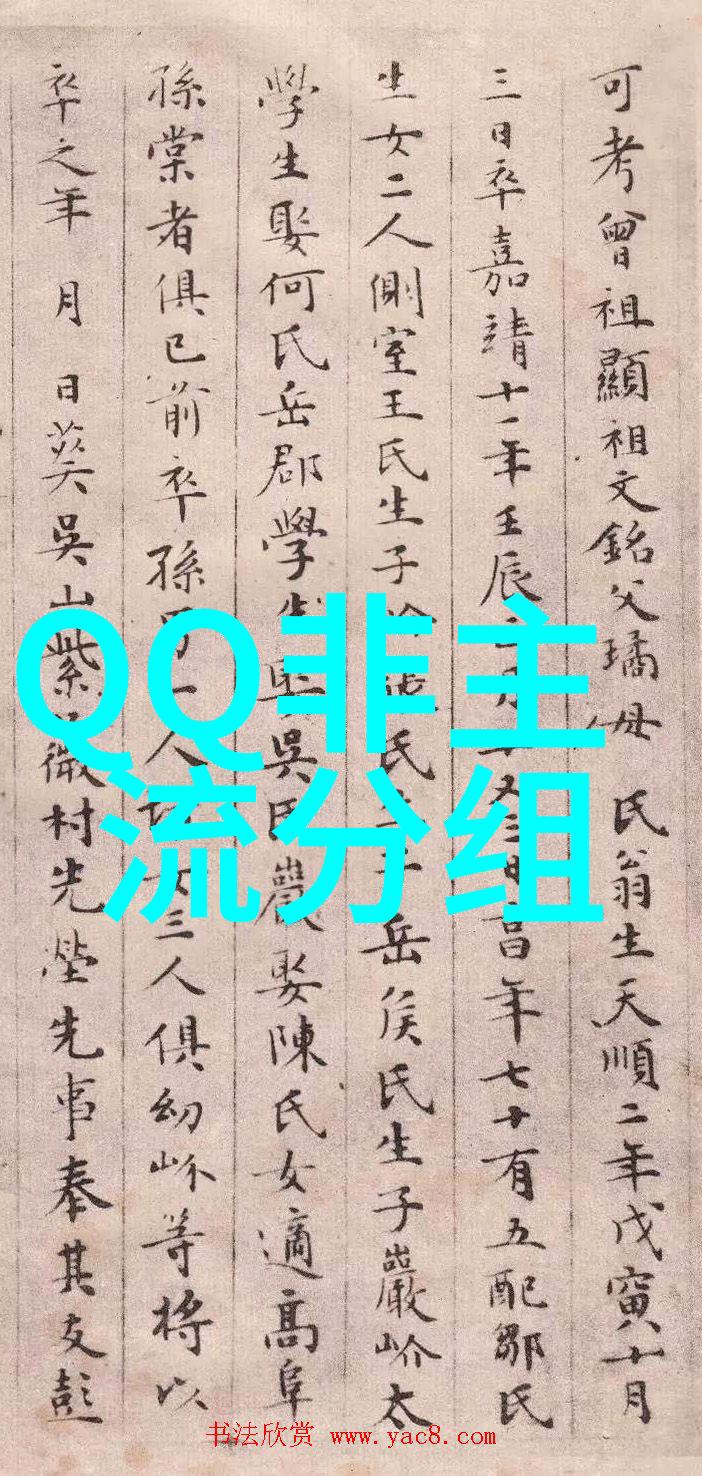 可考曾祖顯祖文銘父璚母 氏翁生天順二年戊寅十月
三日卒嘉靖十一年壬辰二月十又三日昌年七十有五配鄒氏
生女二人側室王氏生子 氏生子岳侯氏生子巖岕太
學生娶何氏岳郡學生娶吳氏巖娶陳氏女適高阜
孫棠者俱已前卒孫男一人 女三人俱幼岕等將以
卒之年 月 日葬吳山紫薇村先塋先事奉其友彭
QQ非主
流分组
书法欣赏 www.yac8.com